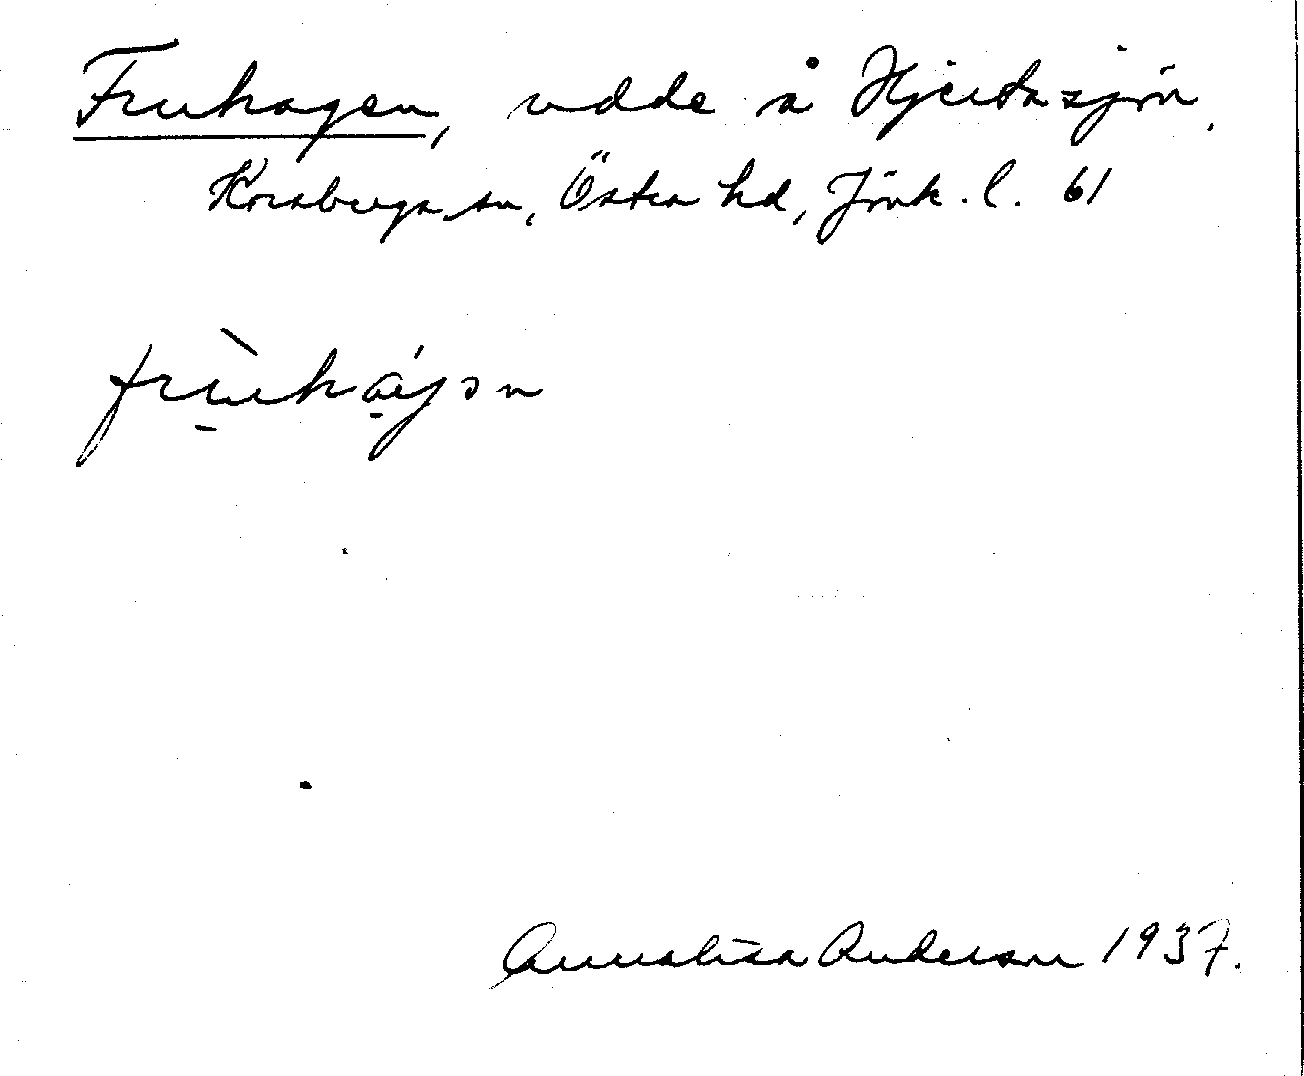 Fruhagen, udde å Hjertasjön.
Korsberga sn, Östra hd, Jönk. l. 61
frùhágən
Annalisa Anderson 1937.